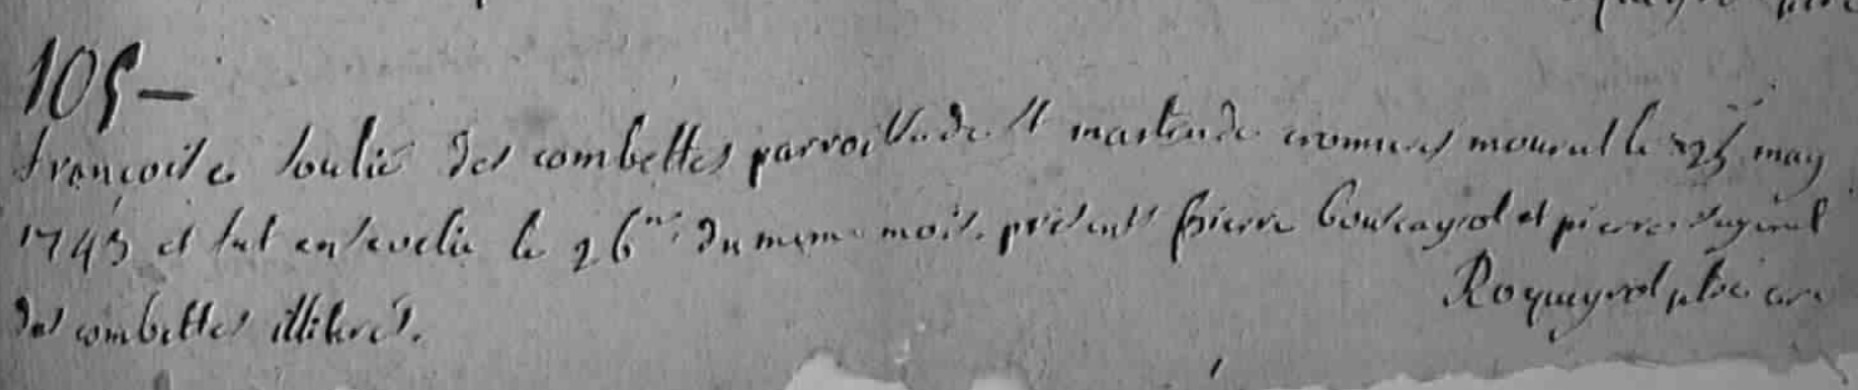 105 —
françoise soulié des combettes parroisse de st martin de cromieres mourut le 25 may
1745 et fut ensevelie le 26me du meme mois. présents pierre Couleagrol et pierre
des combettes illiterés. Roqueyrol ptre cure